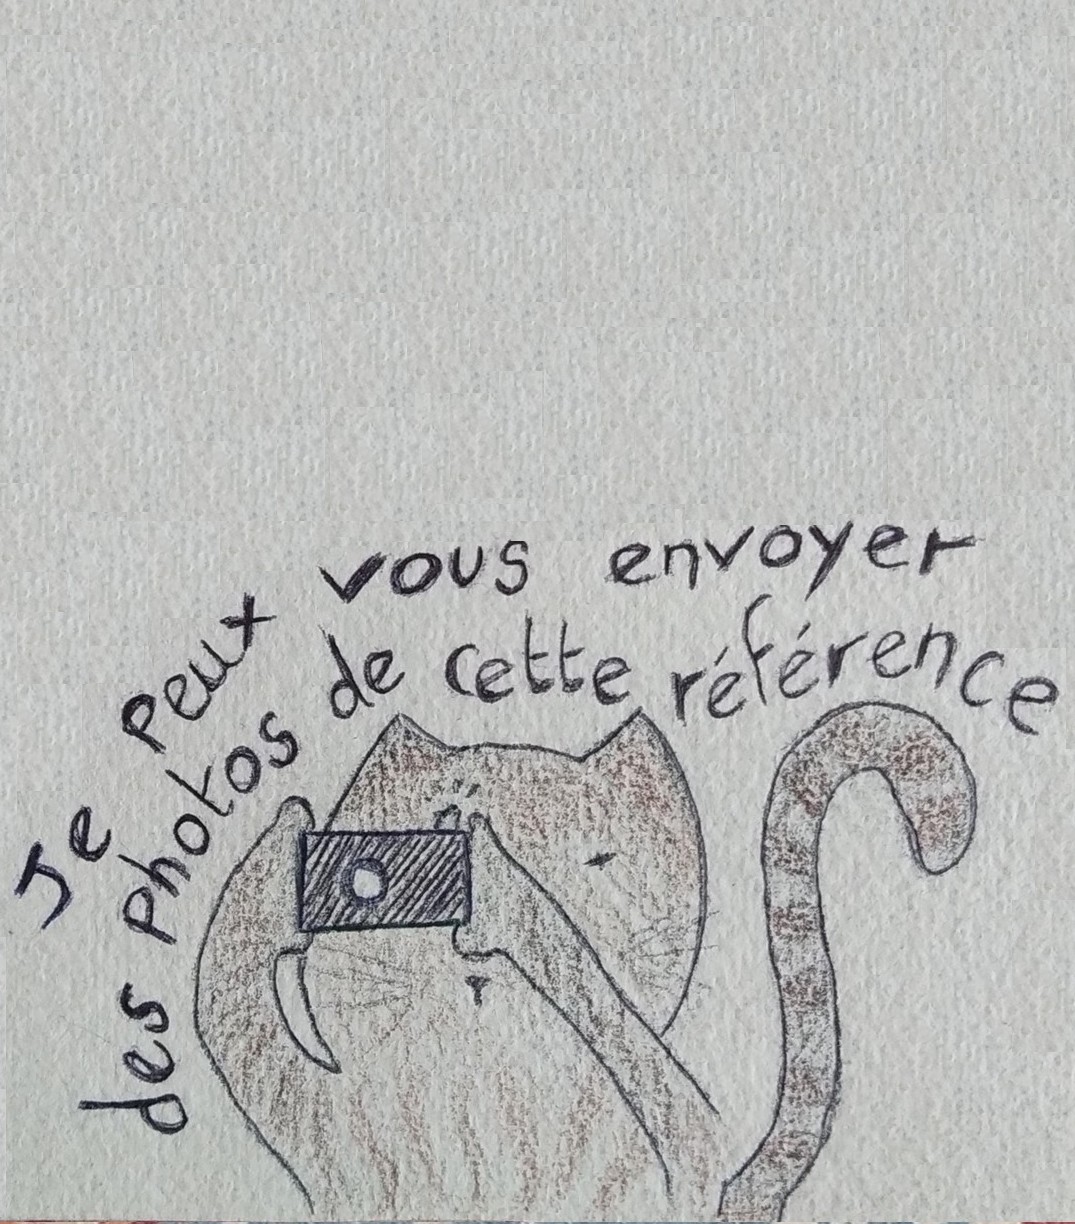 Je peux vous envoyer
des photos de cette référence